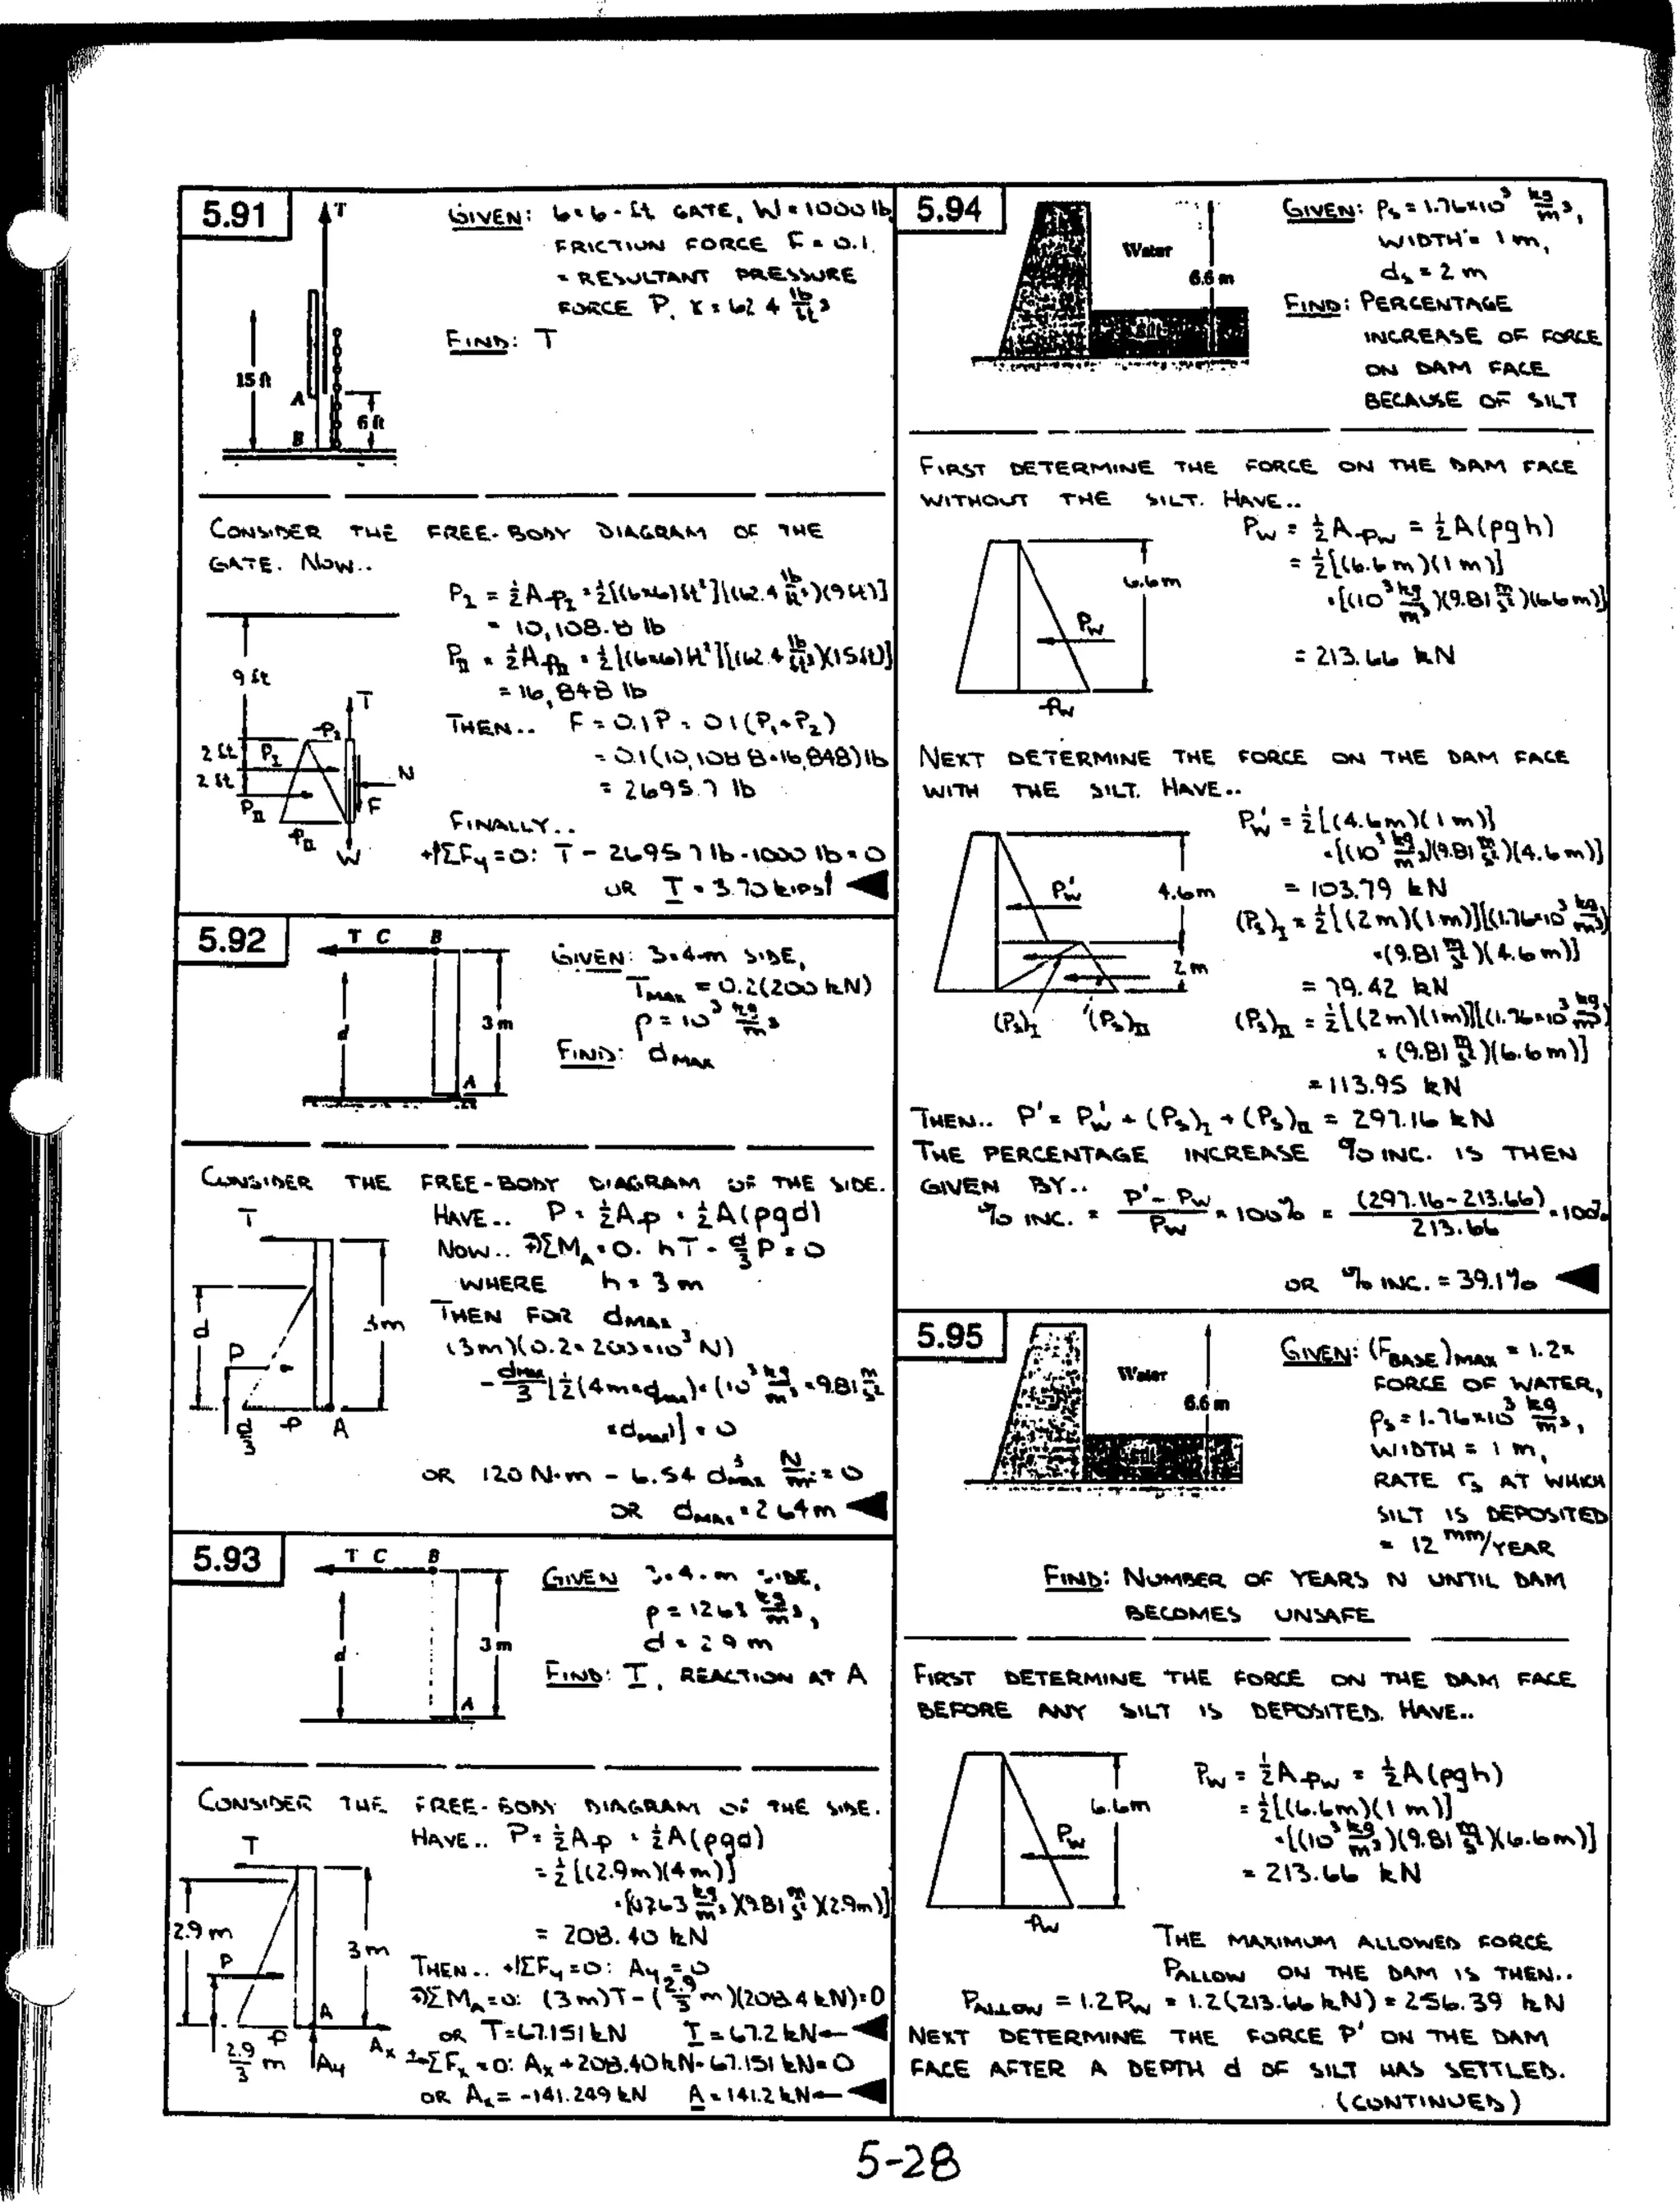 5.91
T
15 ft
A
B
6 ft
GIVEN: 6×6-ft GATE, W = 1000 lb
FRICTION FORCE F = 0.1
= RESULTANT PRESSURE
FORCE P, γ = 62.4 lb/ft³
FIND: T
CONSIDER THE FREE-BODY DIAGRAM OF THE
GATE. NOW..
P_I = ½ A p_I = ½[(6×6) ft²][(62.4 lb/ft³)(9 ft)]
= 10,108.8 lb
P_II = ½ A p_II = ½[(6×6) ft²][(62.4 lb/ft³)(15 ft)]
= 16,848 lb
THEN.. F = 0.1P = 0.1(P₁+P₂)
= 0.1(10,108.8+16,848) lb
= 2695.7 lb
FINALLY..
+↑ΣFy = 0: T - 2695.7 lb - 1000 lb = 0
OR T = 3.70 kips↑
9 ft
2 ft
2 ft
P_I
P_II
p_I
p_II
T
N
F
W
5.92
T C B
d
3 m
A
GIVEN: 3×4-m SIDE,
T_MAX = 0.2(200 kN)
ρ = 10³ kg/m³
FIND: d_MAX
CONSIDER THE FREE-BODY DIAGRAM OF THE SIDE.
HAVE.. P = ½ A p = ½ A(ρgd)
NOW.. ΣM_A = 0: hT - d/3 P = 0
WHERE h = 3 m
THEN FOR d_MAX
(3 m)(0.2×200×10³ N)
- d_MAX/3 [½(4 m×d_MAX)×(10³ kg/m³ × 9.81 m/s²
×d_MAX)] = 0
OR 120 N·m - 6.54 d³_MAX N/m² = 0
OR d_MAX = 2.64 m
T
d
P
d/3
p
A
3m
5.93
T C B
d
3 m
A
GIVEN 3×4-m SIDE,
ρ = 1263 kg/m³,
d = 2.9 m
FIND: T, REACTION AT A
CONSIDER THE FREE-BODY DIAGRAM OF THE SIDE.
HAVE.. P = ½ A p = ½ A(ρgd)
= ½[(2.9 m)(4 m)]
×[(1263 kg/m³)(9.81 m/s²)(2.9 m)]
= 208.40 kN
THEN.. +↑ΣFy = 0: Ay = 0
ΣM_A = 0: (3 m)T - (2.9/3 m)(208.4 kN) = 0
OR T = 67.151 kN T = 67.2 kN←
ΣFx = 0: Ax + 208.40 kN - 67.151 kN = 0
OR Ax = -141.249 kN A = 141.2 kN←
T
2.9 m
P
2.9/3 m
p
A
Ay
Ax
3 m
5.94
Water
6.6 m
Silt
GIVEN: ρs = 1.76×10³ kg/m³,
WIDTH = 1 m,
ds = 2 m
FIND: PERCENTAGE
INCREASE OF FORCE
ON DAM FACE
BECAUSE OF SILT
FIRST DETERMINE THE FORCE ON THE DAM FACE
WITHOUT THE SILT. HAVE..
Pw = ½ A pw = ½ A(ρgh)
= ½[(6.6 m)(1 m)]
×[(10³ kg/m³)(9.81 m/s²)(6.6 m)]
= 213.66 kN
6.6m
Pw
pw
NEXT DETERMINE THE FORCE ON THE DAM FACE
WITH THE SILT. HAVE..
Pw' = ½[(4.6 m)(1 m)]
×[(10³ kg/m³)(9.81 m/s²)(4.6 m)]
= 103.79 kN
(Ps)_I = ½[(2 m)(1 m)][(1.76×10³ kg/m³)
×(9.81 m/s²)(4.6 m)]
= 79.42 kN
(Ps)_II = ½[(2 m)(1 m)][(1.76×10³ kg/m³)
×(9.81 m/s²)(6.6 m)]
= 113.95 kN
Pw'
4.6m
2 m
(Ps)_I
(Ps)_II
THEN.. P' = Pw' + (Ps)_I + (Ps)_II = 297.16 kN
THE PERCENTAGE INCREASE % INC. IS THEN
GIVEN BY..
% INC. = (P' - Pw)/Pw × 100% = (297.16-213.66)/213.66 × 100%
OR % INC. = 39.1%
5.95
Water
6.6 m
GIVEN: (F_BASE)_MAX = 1.2×
FORCE OF WATER,
ρs = 1.76×10³ kg/m³,
WIDTH = 1 m,
RATE rs AT WHICH
SILT IS DEPOSITED
= 12 mm/YEAR
FIND: NUMBER OF YEARS N UNTIL DAM
BECOMES UNSAFE
FIRST DETERMINE THE FORCE ON THE DAM FACE
BEFORE ANY SILT IS DEPOSITED. HAVE..
Pw = ½ A pw = ½ A(ρgh)
= ½[(6.6m)(1 m)]
×[(10³ kg/m³)(9.81 m/s²)(6.6m)]
= 213.66 kN
6.6m
Pw
pw
THE MAXIMUM ALLOWED FORCE
P_ALLOW ON THE DAM IS THEN..
P_ALLOW = 1.2 Pw = 1.2(213.66 kN) = 256.39 kN
NEXT DETERMINE THE FORCE P' ON THE DAM
FACE AFTER A DEPTH d OF SILT HAS SETTLED.
(CONTINUED)
5-28